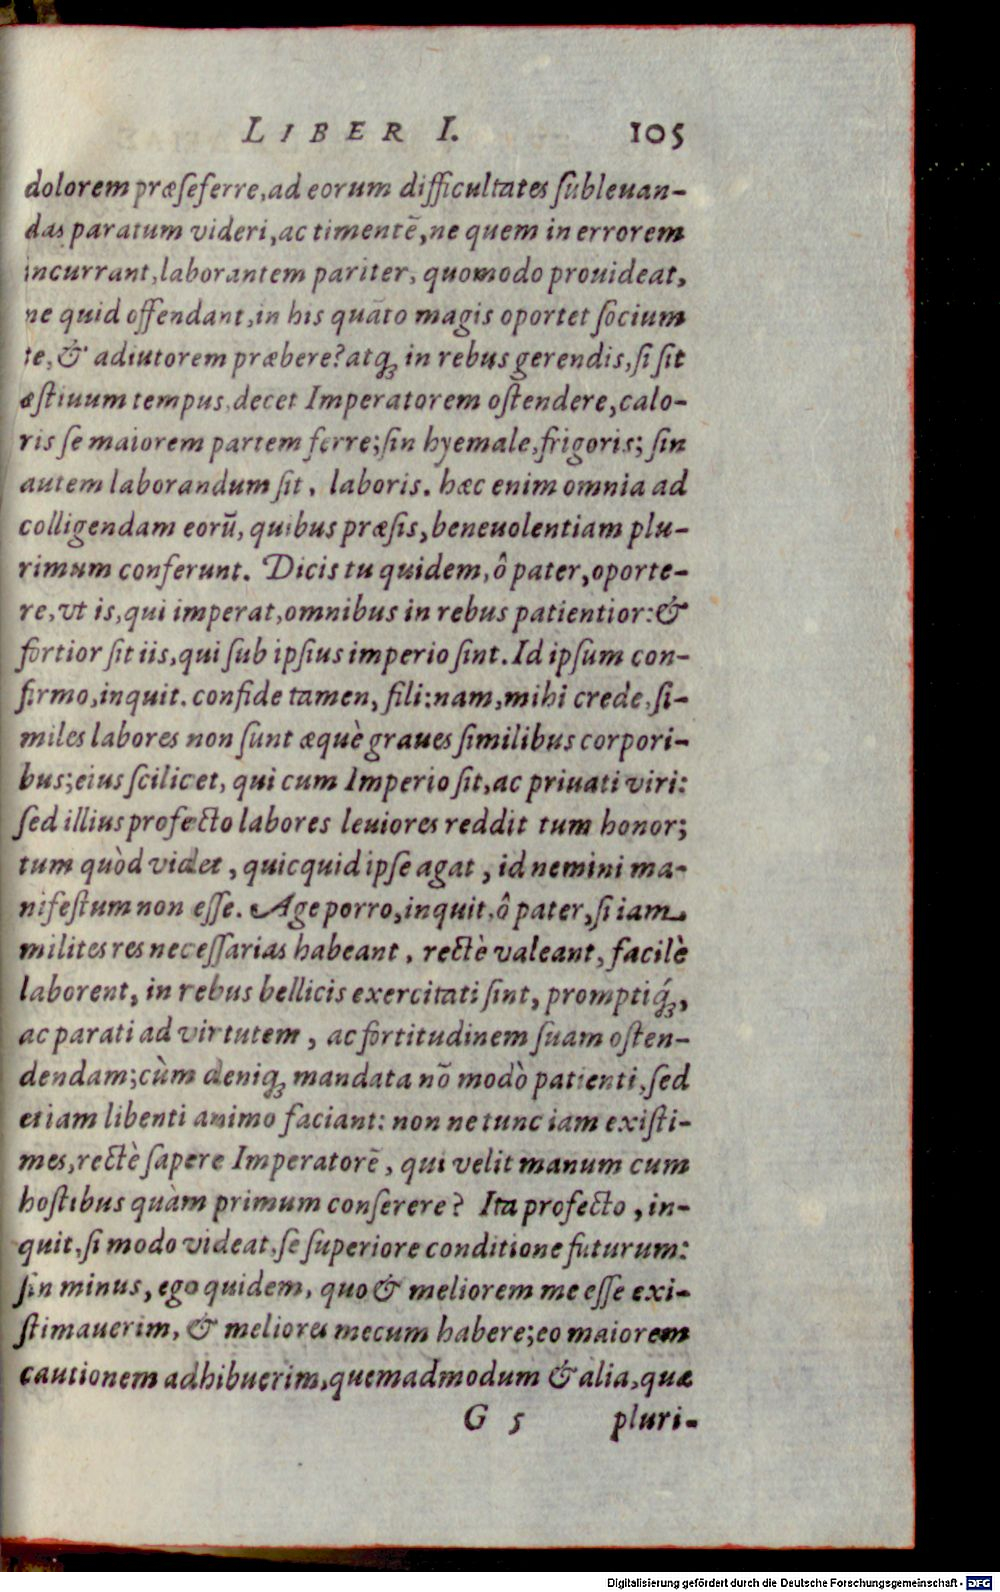 LIBER I. 105
dolorem præſeferre, ad eorum difficultates ſubleuan-
das paratum videri, ac timentẽ, ne quem in errorem
incurrant, laborantem pariter, quomodo prouideat,
ne quid offendant, in his quãto magis oportet ſocium
te, & adiutorem præbere? atq; in rebus gerendis, ſi ſit
æſtiuum tempus, decet Imperatorem oſtendere, calo-
ris ſe maiorem partem ferre; ſin hyemale, frigoris; ſin
autem laborandum ſit, laboris. hæc enim omnia ad
colligendam eorũ, quibus præſis, beneuolentiam plu-
rimum conferunt. Dicis tu quidem, ô pater, oporte-
re, vt is, qui imperat, omnibus in rebus patientior: &
fortior ſit iis, qui ſub ipſius imperio ſint. Id ipſum con-
firmo, inquit. confide tamen, fili: nam, mihi crede, ſi-
miles labores non ſunt æquè graues ſimilibus corpori-
bus; eius ſcilicet, qui cum Imperio ſit, ac priuati viri:
ſed illius profecto labores leuiores reddit tum honor;
tum quòd videt, quicquid ipſe agat, id nemini ma-
nifeſtum non eſſe. Age porro, inquit, ô pater, ſi iam
milites res neceſſarias habeant, rectè valeant, facilè
laborent, in rebus bellicis exercitati ſint, promptiq́;,
ac parati ad virtutem, ac fortitudinem ſuam oſten-
dendam; cùm deniq; mandata nõ modò patienti, ſed
etiam libenti animo faciant: non ne tunc iam exiſti-
mes, rectè ſapere Imperatorẽ, qui velit manum cum
hoſtibus quàm primum conſerere? Ita profecto, in-
quit, ſi modo videat, ſe ſuperiore conditione futurum:
ſin minus, ego quidem, quo & meliorem me eſſe exi-
ſtimauerim, & meliores mecum habere; eo maiorem
cautionem adhibuerim, quemadmodum & alia, quæ
G 5 pluri-
Digitalisierung gefördert durch die Deutsche Forschungsgemeinschaft - DFG